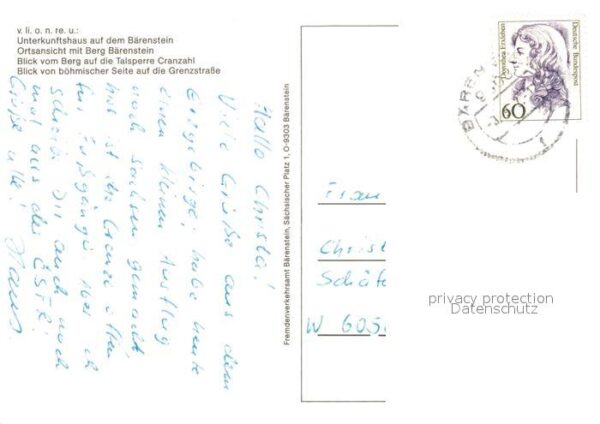 v. li. o. n. re. u.:
Unterkunftshaus auf dem Bärenstein
Ortsansicht mit Berg Bärenstein
Blick vom Berg auf die Talsperre Cranzahl
Blick von böhmischer Seite auf die Grenzstraße
Hallo Christa!
Viele Grüße aus dem
Erzgebirge, habe heute
einen kleinen Ausflug
nach Sachsen gemacht,
hier ist die Grenze offen
für Fußgänger
schreibe Dir auch noch
mal aus der ČSFR!
Grüße alle! Hans
Fremdenverkehrsamt Bärenstein, Sächsischer Platz 1, O-9303 Bärenstein
Dorothea Erxleben
Deutsche Bundespost
60
BÄREN
Frau
Christ
Schäfe
W 605
privacy protection
Datenschutz